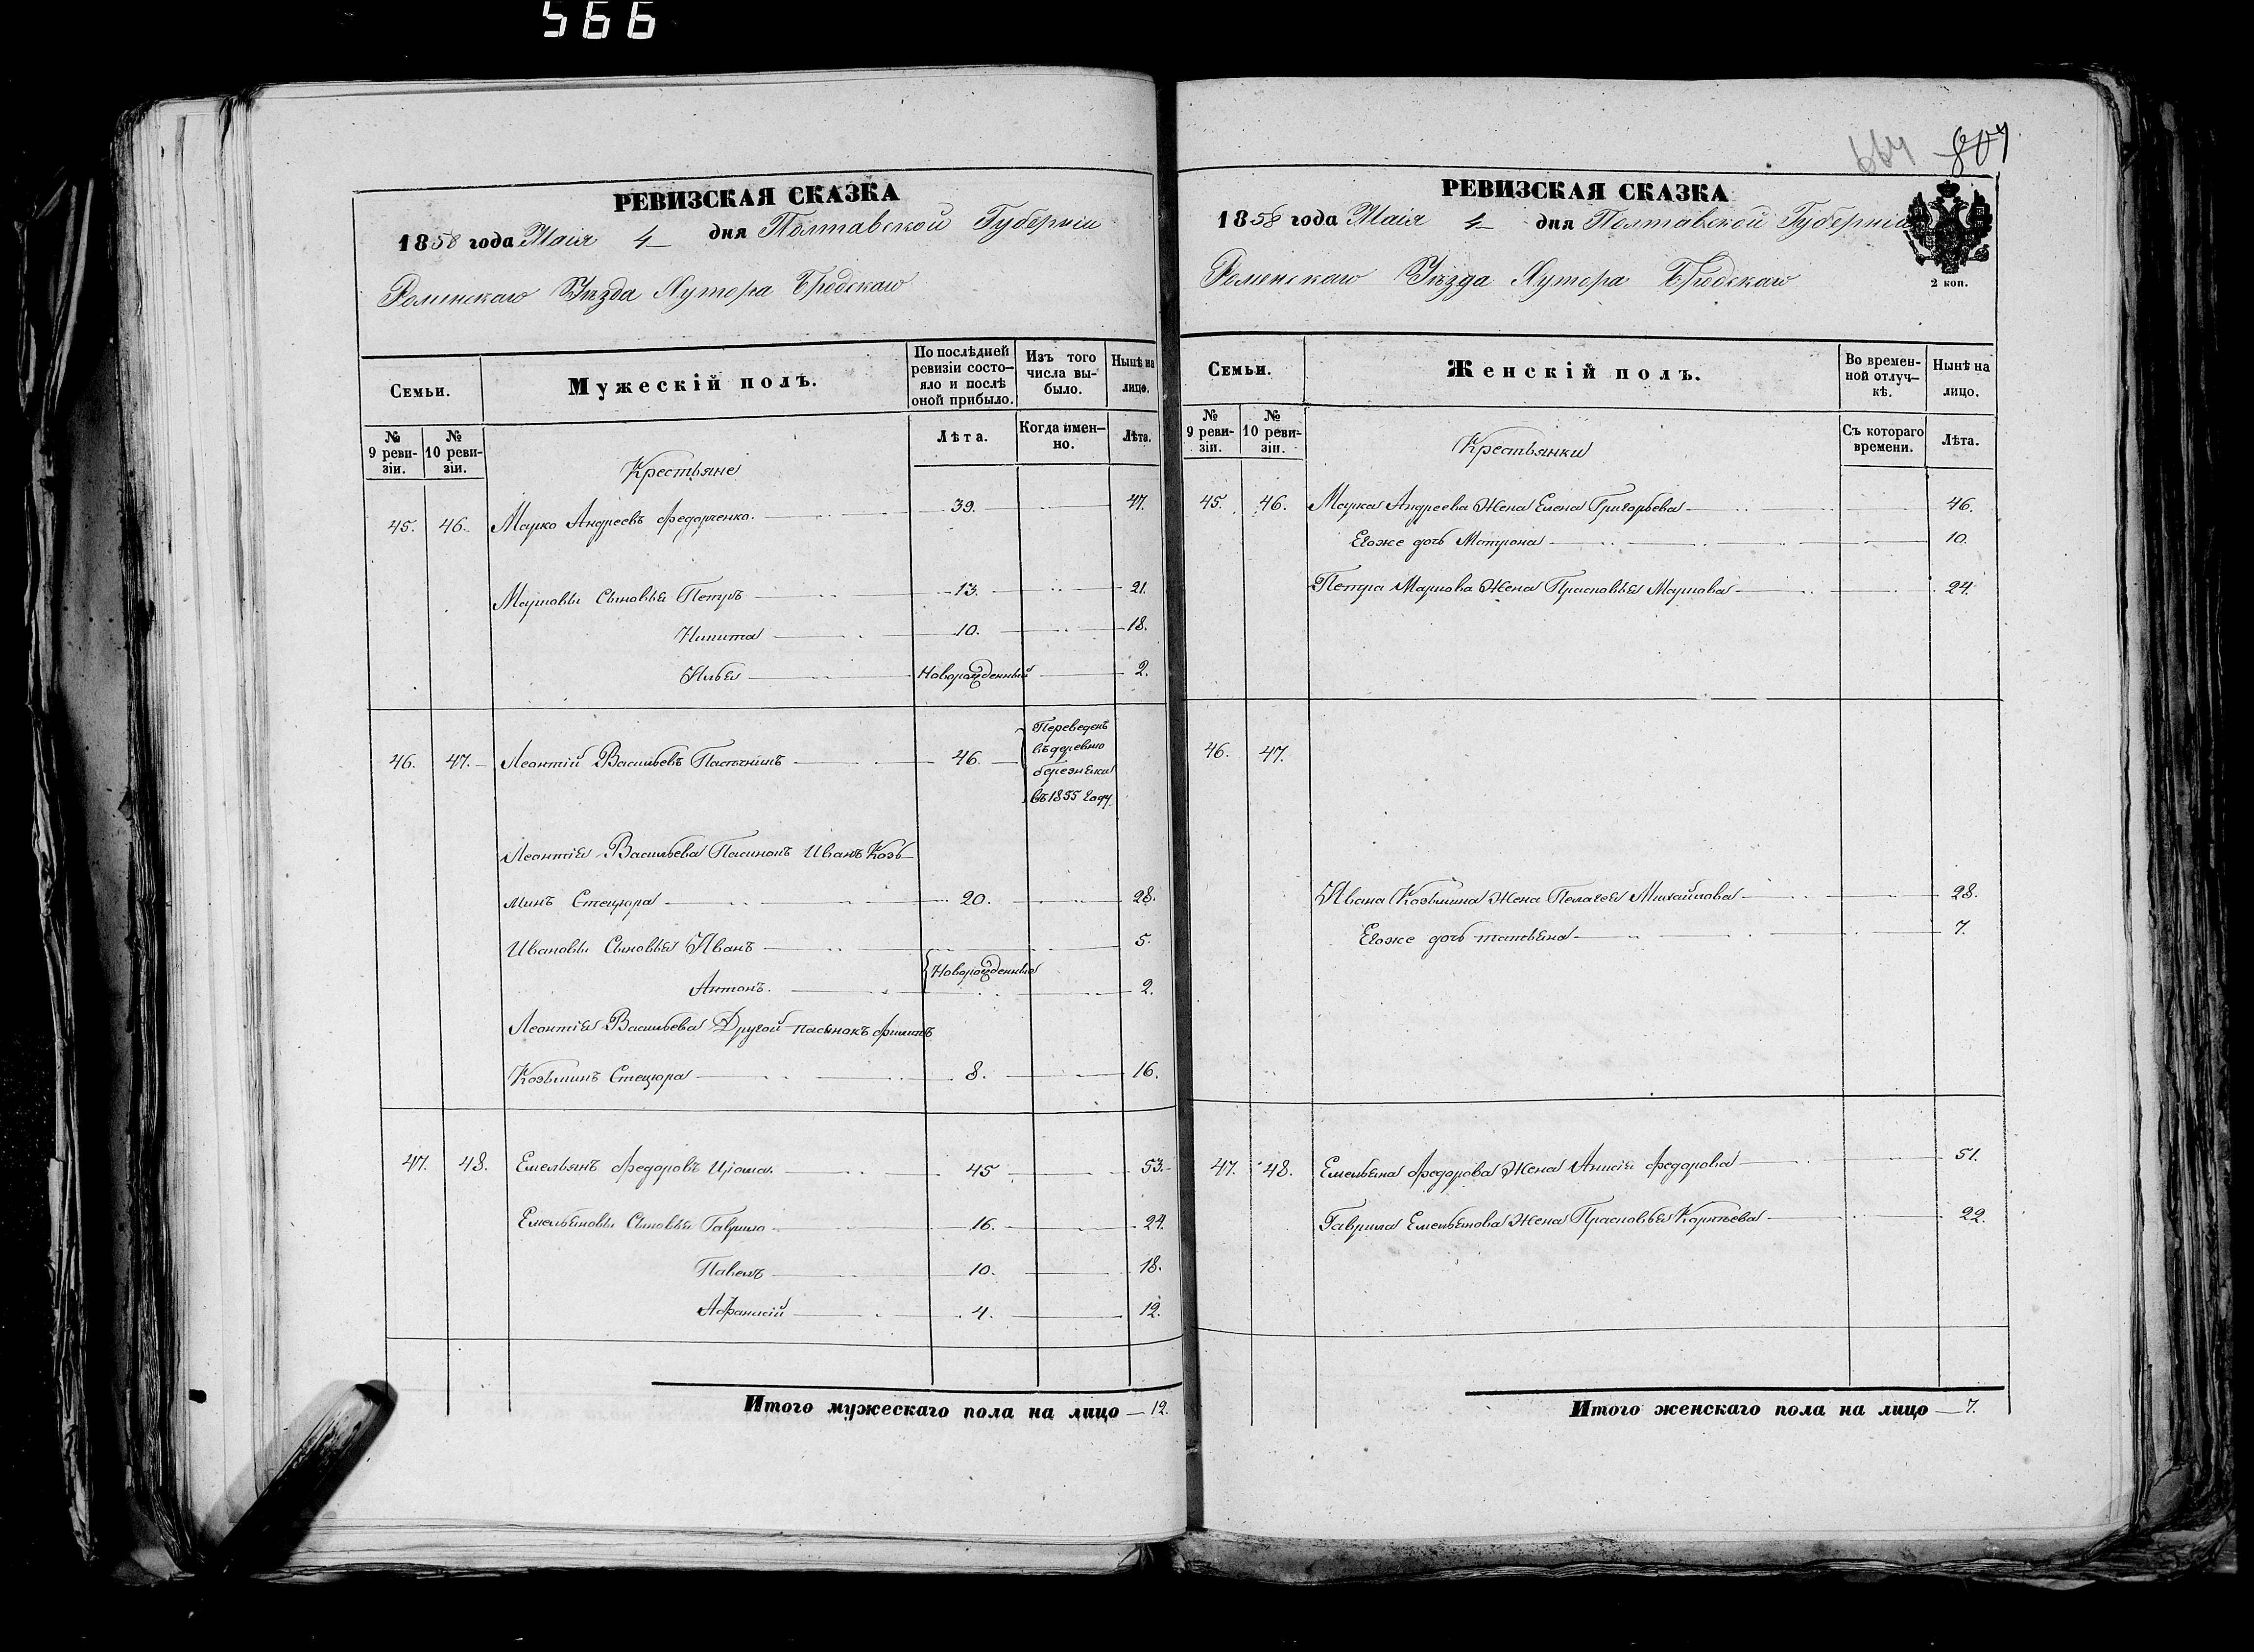 566
РЕВИЗСКАЯ СКАЗКА
1858 года Маія 4 дня Полтавской Губерніи
Роменскаго Уѣзда Хутора Бродскаго
Семьи.
Мужескій полъ.
По послѣдней ревизіи состояло и послѣ оной прибыло.
Изъ того числа выбыло.
Нынѣ на лицо.
№ 9 ревизіи.
№ 10 ревизіи.
Лѣта.
Когда именно.
Лѣта.
Крестьяне
45. 46. Марко Андреевъ Федорченко. 39. 47.
Марковы Сыновья Петръ 13. 21.
Никита 10. 18.
Илья Новорожденный 2.
46. 47. Леонтій Васильевъ Пасѣчникъ 46. Переведенъ
въ деревню
березняки
въ 1855 году
Леонтія Васильева Пасынокъ Иванъ Козь-
минъ Стецюра 20. 28.
Ивановы Сыновья Иванъ 5.
Новорожденные
Антонъ. 2.
Леонтія Васильева Другой пасынокъ Филиппъ
Козьминъ Стецюра 8. 16.
47. 48. Емельянъ Федоровъ Ціома. 45 53.
Емельяновы Сыновья Гаврило 16. 24.
Павелъ 10. 18.
Афанасій 4. 12.
Итого мужескаго пола на лицо 12.
664 807
РЕВИЗСКАЯ СКАЗКА
1858 года Маія 4 дня Полтавской Губерніи
2 коп.
Роменскаго Уѣзда Хутора Бродскаго
Семьи.
Женскій полъ.
Во временной отлучкѣ.
Нынѣ на лицо.
№ 9 ревизіи.
№ 10 ревизіи.
Съ котораго времени.
Лѣта.
Крестьянки
45. 46. Марка Андреева Жена Елена Григорьева 46.
Егоже дочь Мотрона 10.
Петра Маркова Жена Прасковья Маркова 24.
46. 47.
Ивана Козьмина Жена Пелагея Михайлова 28.
Егоже дочь татьяна 7.
47. 48. Емельяна Федорова Жена Анисія Федорова 51.
Гаврила Емельянова Жена Прасковья Корнѣева 22.
Итого женскаго пола на лицо 7.